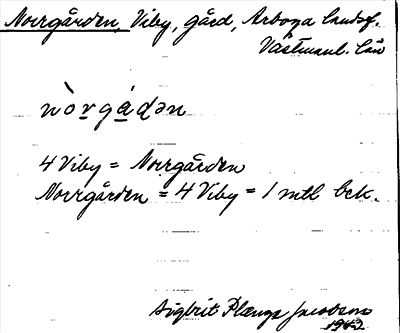 Norrgården, Viby, gård, Arboga landsf.
Västmanl. län
nòrgådən
4 Viby = Norrgården
Norrgården = 4 Viby = 1 mtl bck.
Sigbrit Plænge Jacobson
1962